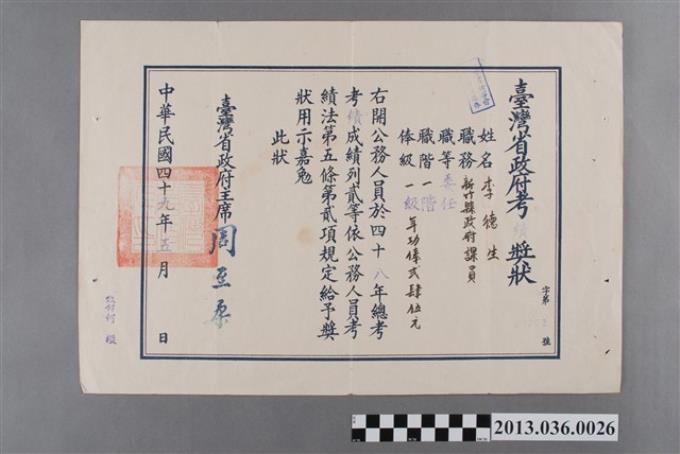 臺灣省政府考績獎狀
字第 號
姓名 李德生
職務 新竹縣政府課員
職等 委任
職階 一階
俸級 一級 年功俸貳肆伍元
右開公務人員於四十八年總考
考績成績列貳等依公務人員考
績法第五條第貳項規定給予獎
狀用示嘉勉
此狀
臺灣省政府主席周至柔
中華民國四十九年五月 日
2013.036.0026